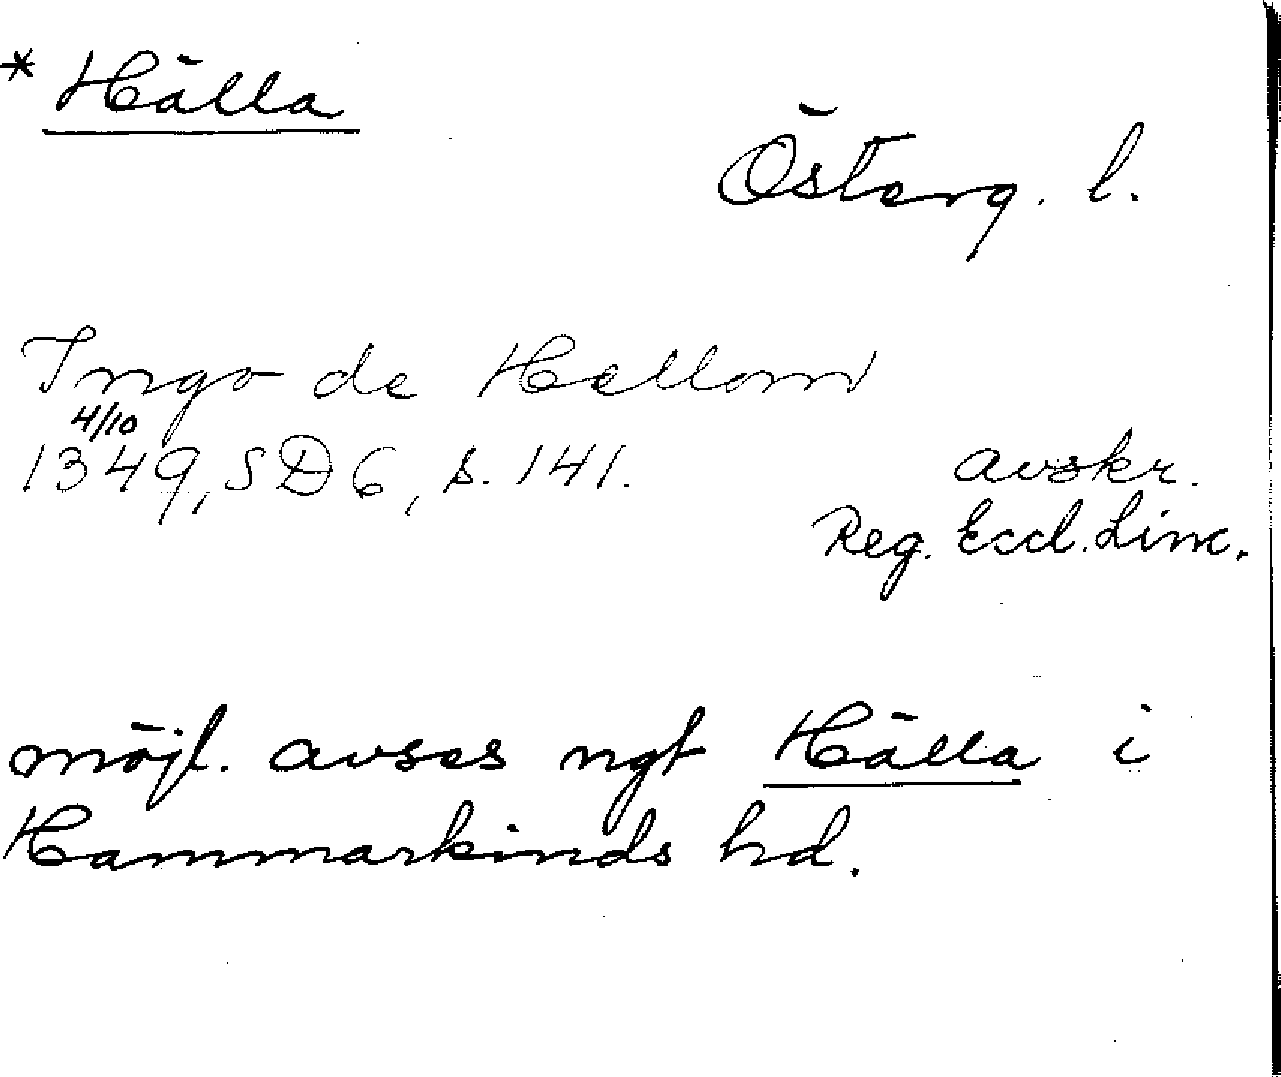 * Hälla
Österg. l.
Ingo de Hellom
4/10
1349, SD 6, s. 141.
avskr.
Reg. Eccl. Linc.
möjl. avses ngt Hälla i
Hammarkinds hd.